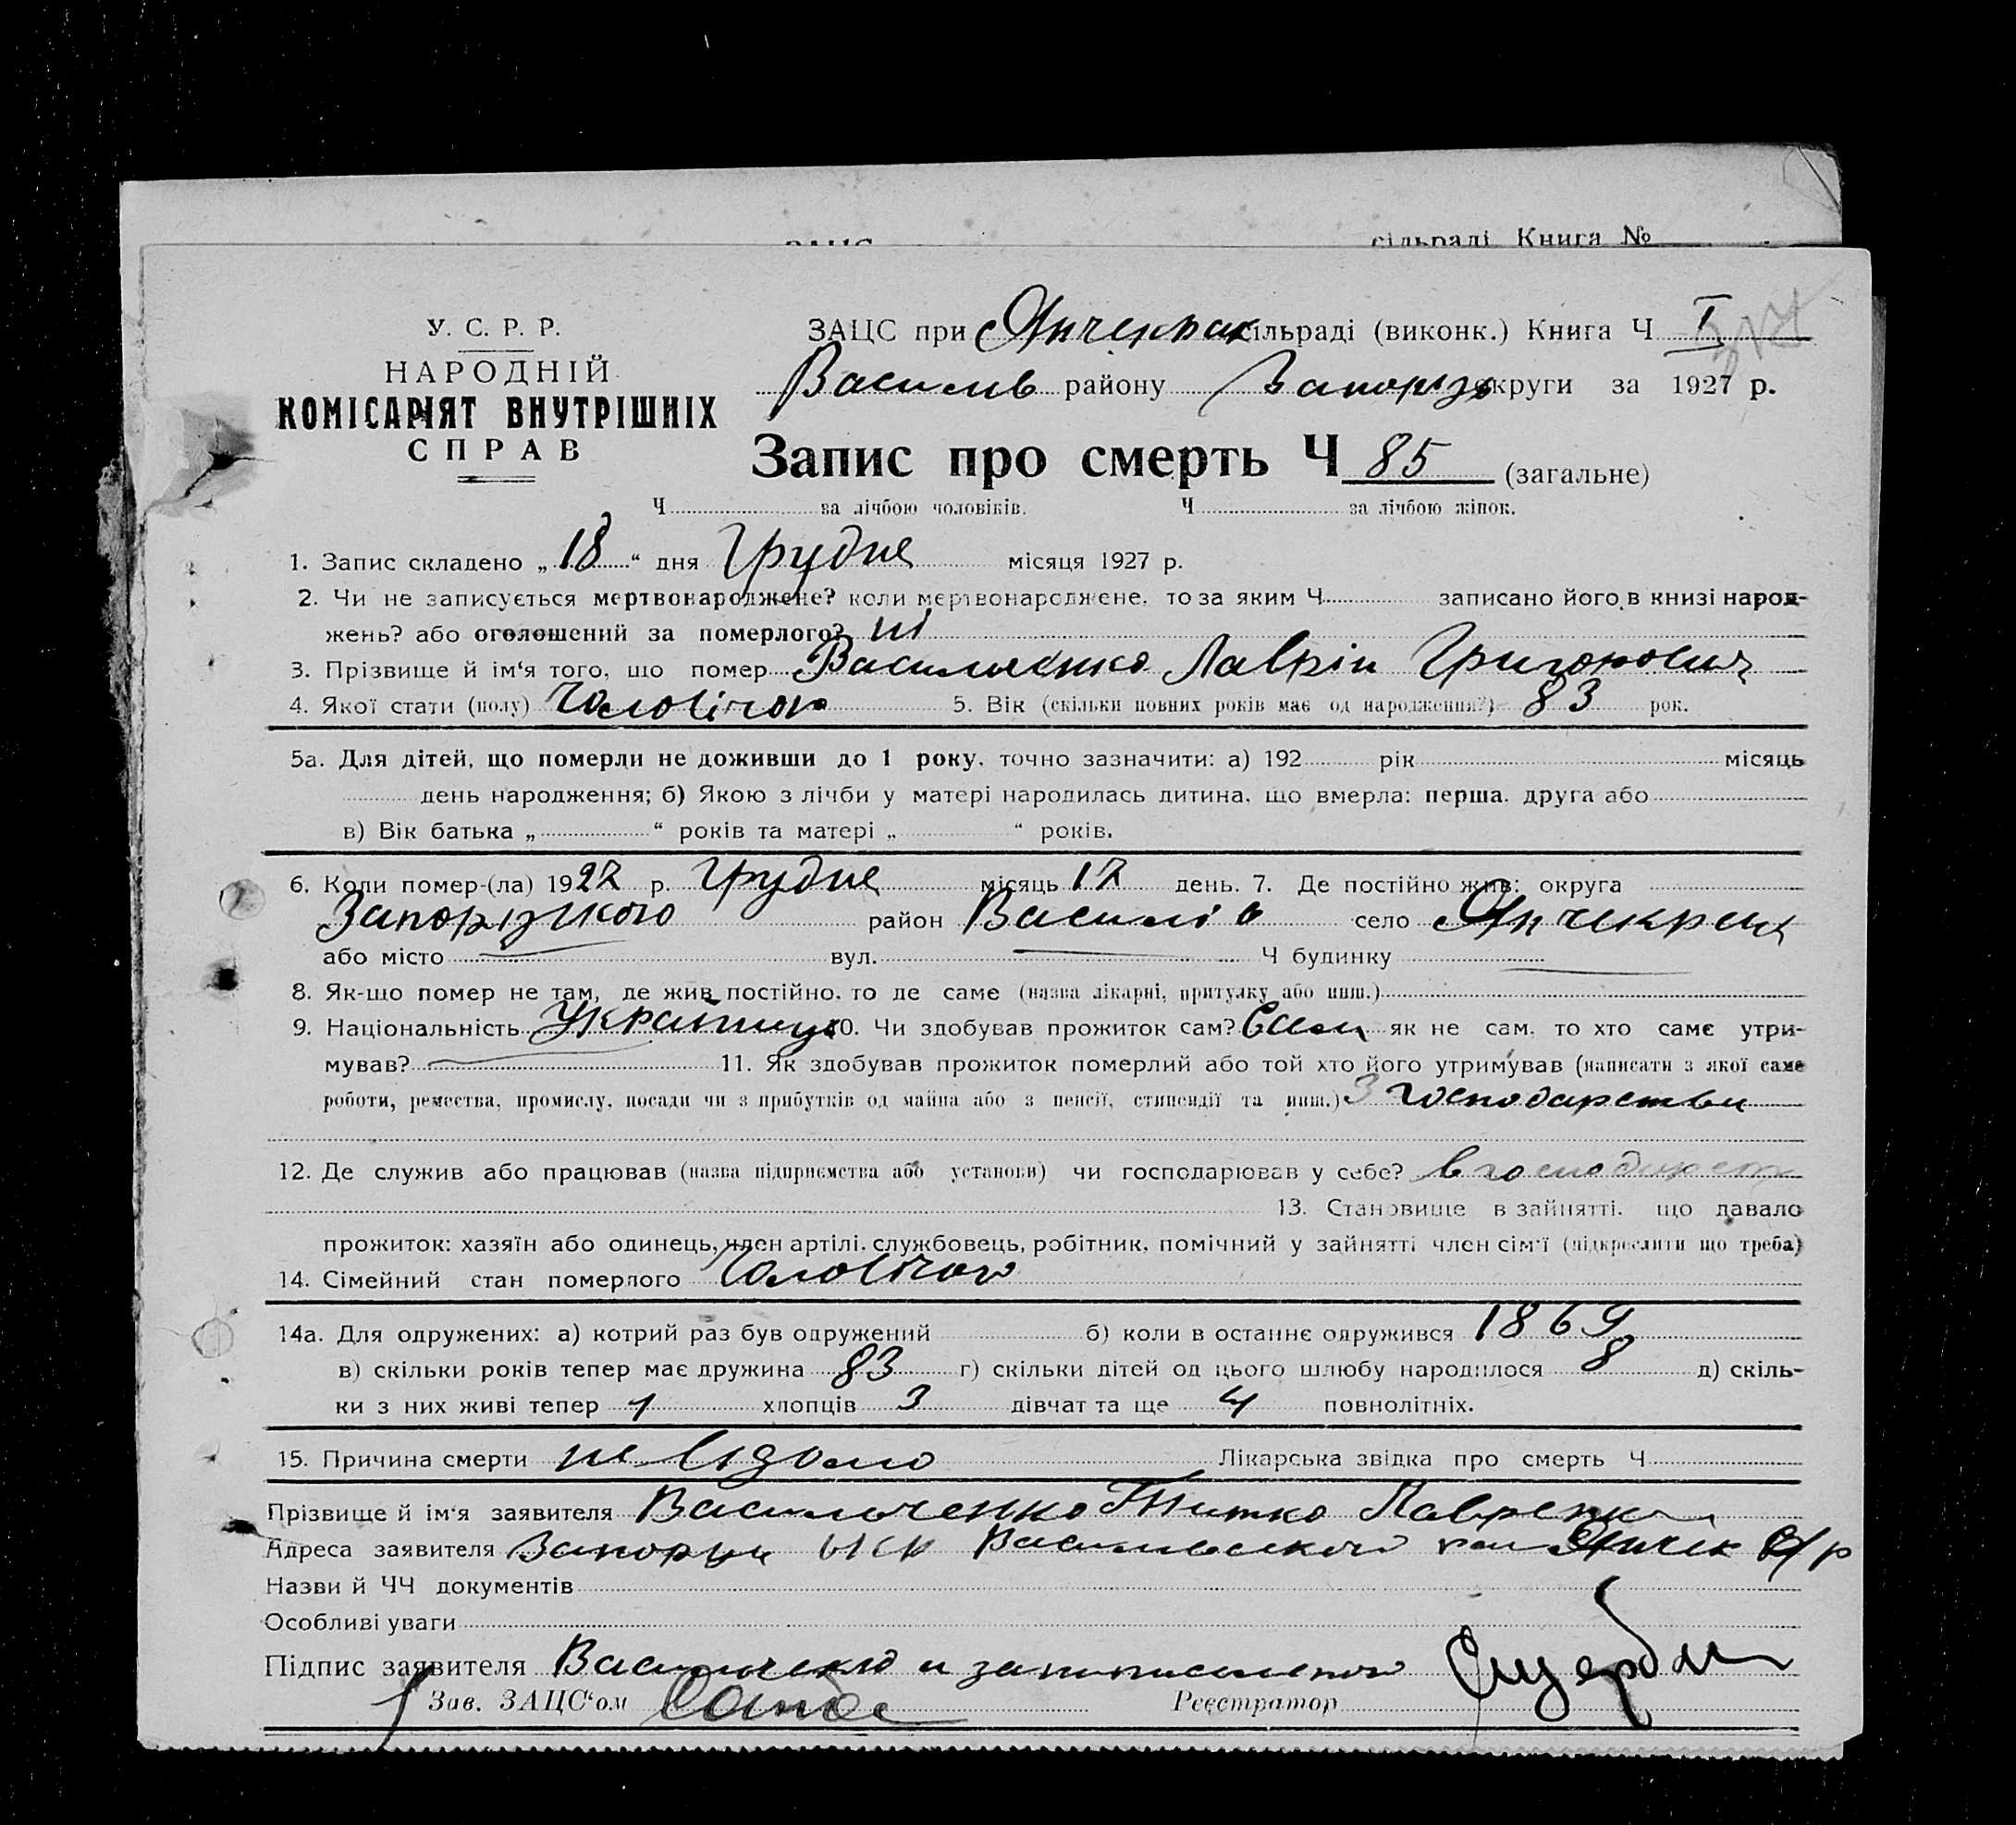 ЗАЦС сільраді Книга №
У. С. Р. Р.
НАРОДНІЙ
КОМІСАРІЯТ ВНУТРІШНІХ
СПРАВ
ЗАЦС при Янчекрак сільраді (виконк.) Книга Ч I
Василів району Запоріз округи за 1927 р.
Запис про смерть Ч 85 (загальне)
Ч за лічбою чоловіків. Ч за лічбою жінок.
1. Запис складено „ 18 “ дня Грудне місяця 1927 р.
2. Чи не записується мертвонароджене? коли мертвонароджене, то за яким Ч записано його в книзі народ-
жень? або оголошений за померлого? ні
3. Прізвище й ім'я того, що помер Василиченко Лаврін Григорович
4. Якої стати (полу) Чоловічої 5. Вік (скільки повних років має од народження?) 83 рок.
5а. Для дітей, що померли не доживши до 1 року, точно зазначити: а) 192 рік місяць
день народження; б) Якою з лічби у матері народилась дитина, що вмерла: перша, друга або
в) Вік батька „ “ років та матері „ “ років.
6. Коли помер-(ла) 1927 р. Грудне місяць 17 день. 7. Де постійно жив: округа
Запорізького район Василів село Янчикрак
або місто вул. Ч будинку
8. Як-що помер не там, де жив постійно, то де саме (назва лікарні, притулку або инш.)
9. Національність Українец 10. Чи здобував прожиток сам? Сам як не сам, то хто саме утри-
мував? 11. Як здобував прожиток померлий або той хто його утримував (написати з якої саме
роботи, ремества, промислу, посади чи з прибутків од майна або з пенсії, стипендії та инш.) З господарства
12. Де служив або працював (назва підприємства або установи) чи господарював у себе? в господарст
13. Становище в зайнятті, що давало
прожиток: хазяїн або одинець, член артілі, службовець, робітник, помічний у зайнятті член сім'ї (підкреслити що треба)
14. Сімейний стан померлого
14а. Для одружених: а) котрий раз був одружений б) коли в останнє одружився 1869
в) скільки років тепер має дружина 83 г) скільки дітей од цього шлюбу народилося 8 д) скіль-
ки з них живі тепер 1 хлопців 3 дівчат та ще 4 повнолітніх.
15. Причина смерти не відомо Лікарська звідка про смерть Ч
Прізвище й ім'я заявителя Васильченко Титко
Адреса заявителя Запоріз Василівского Янчек с/р
Назви й ЧЧ документів
Особливі уваги
Підпис заявителя
Зав. ЗАЦС'ом Реєстратор